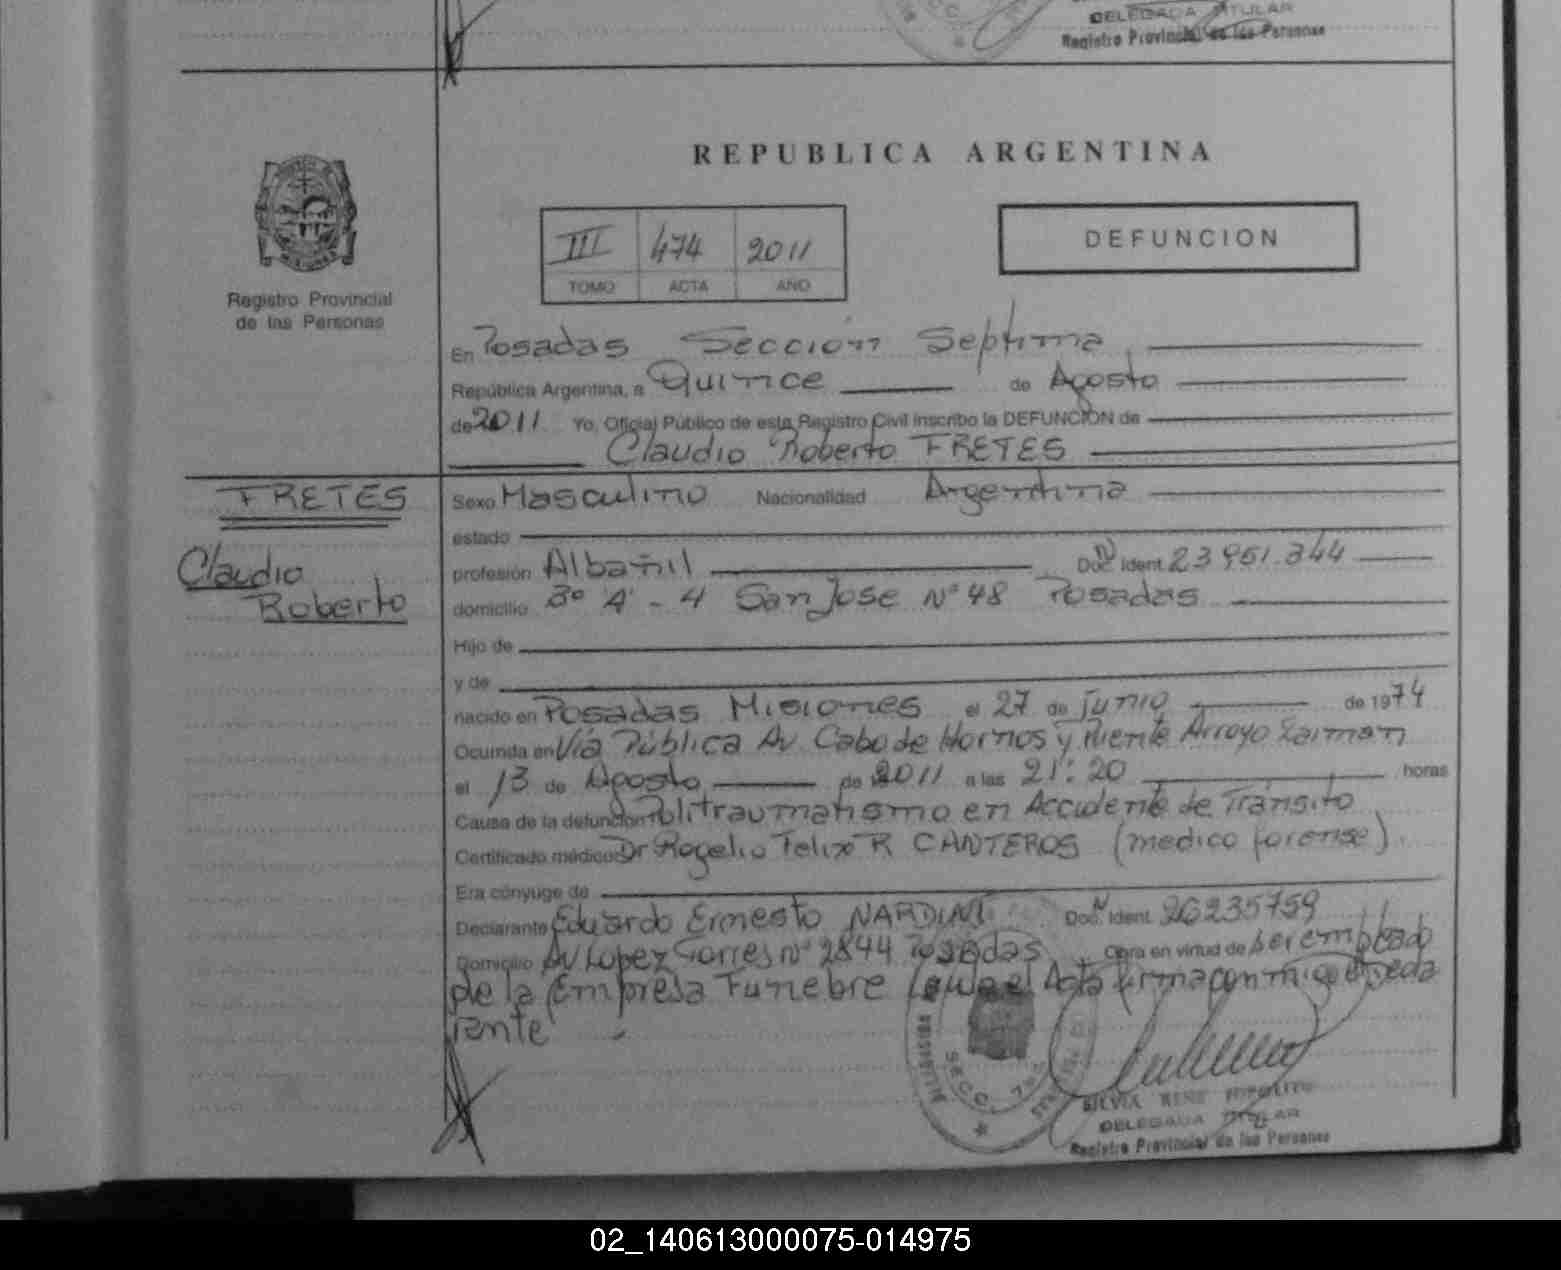 DELEGADA TITULAR
Registro Provincial de las Personas
REPUBLICA ARGENTINA
III 474 2011
TOMO ACTA AÑO
DEFUNCION
Registro Provincial
de las Personas
En Posadas Sección Septima
República Argentina, a Quince de Agosto
de 2011 Yo, Oficial Público de esta Registro Civil inscribo la DEFUNCION de
Claudio Roberto FRETES
FRETES
Claudio
Roberto
Sexo Masculino Nacionalidad Argentina
estado
profesión Albañil Doc. Ident. 23951.344
domicilio 3° A - 4 San Jose N° 48 Posadas
Hijo de
y de
nacido en Posadas Misiones el 27 de junio de 1974
Ocurrida en Vía Pública Av Cabo de Hornos y Puente Arroyo Zaiman
el 13 de Agosto de 2011 a las 21:20 horas
Causa de la defunción Politraumatismo en Accidente de Tránsito
Certificado médico Dr Rogelio Felix R CANTEROS (medico forense)
Era cónyuge de
Declarante Eduardo Ernesto NARDINI Doc. Ident. 26235759
Domicilio Av Lopez Torres N° 2844 Posadas Obra en virtud de ser empleado
de la Empresa Funebre Leida el Acta firma con migo el Decla
rante
SILVIA RENE HIPOLITO
DELEGADA TITULAR
Registro Provincial de las Personas
02_140613000075-014975